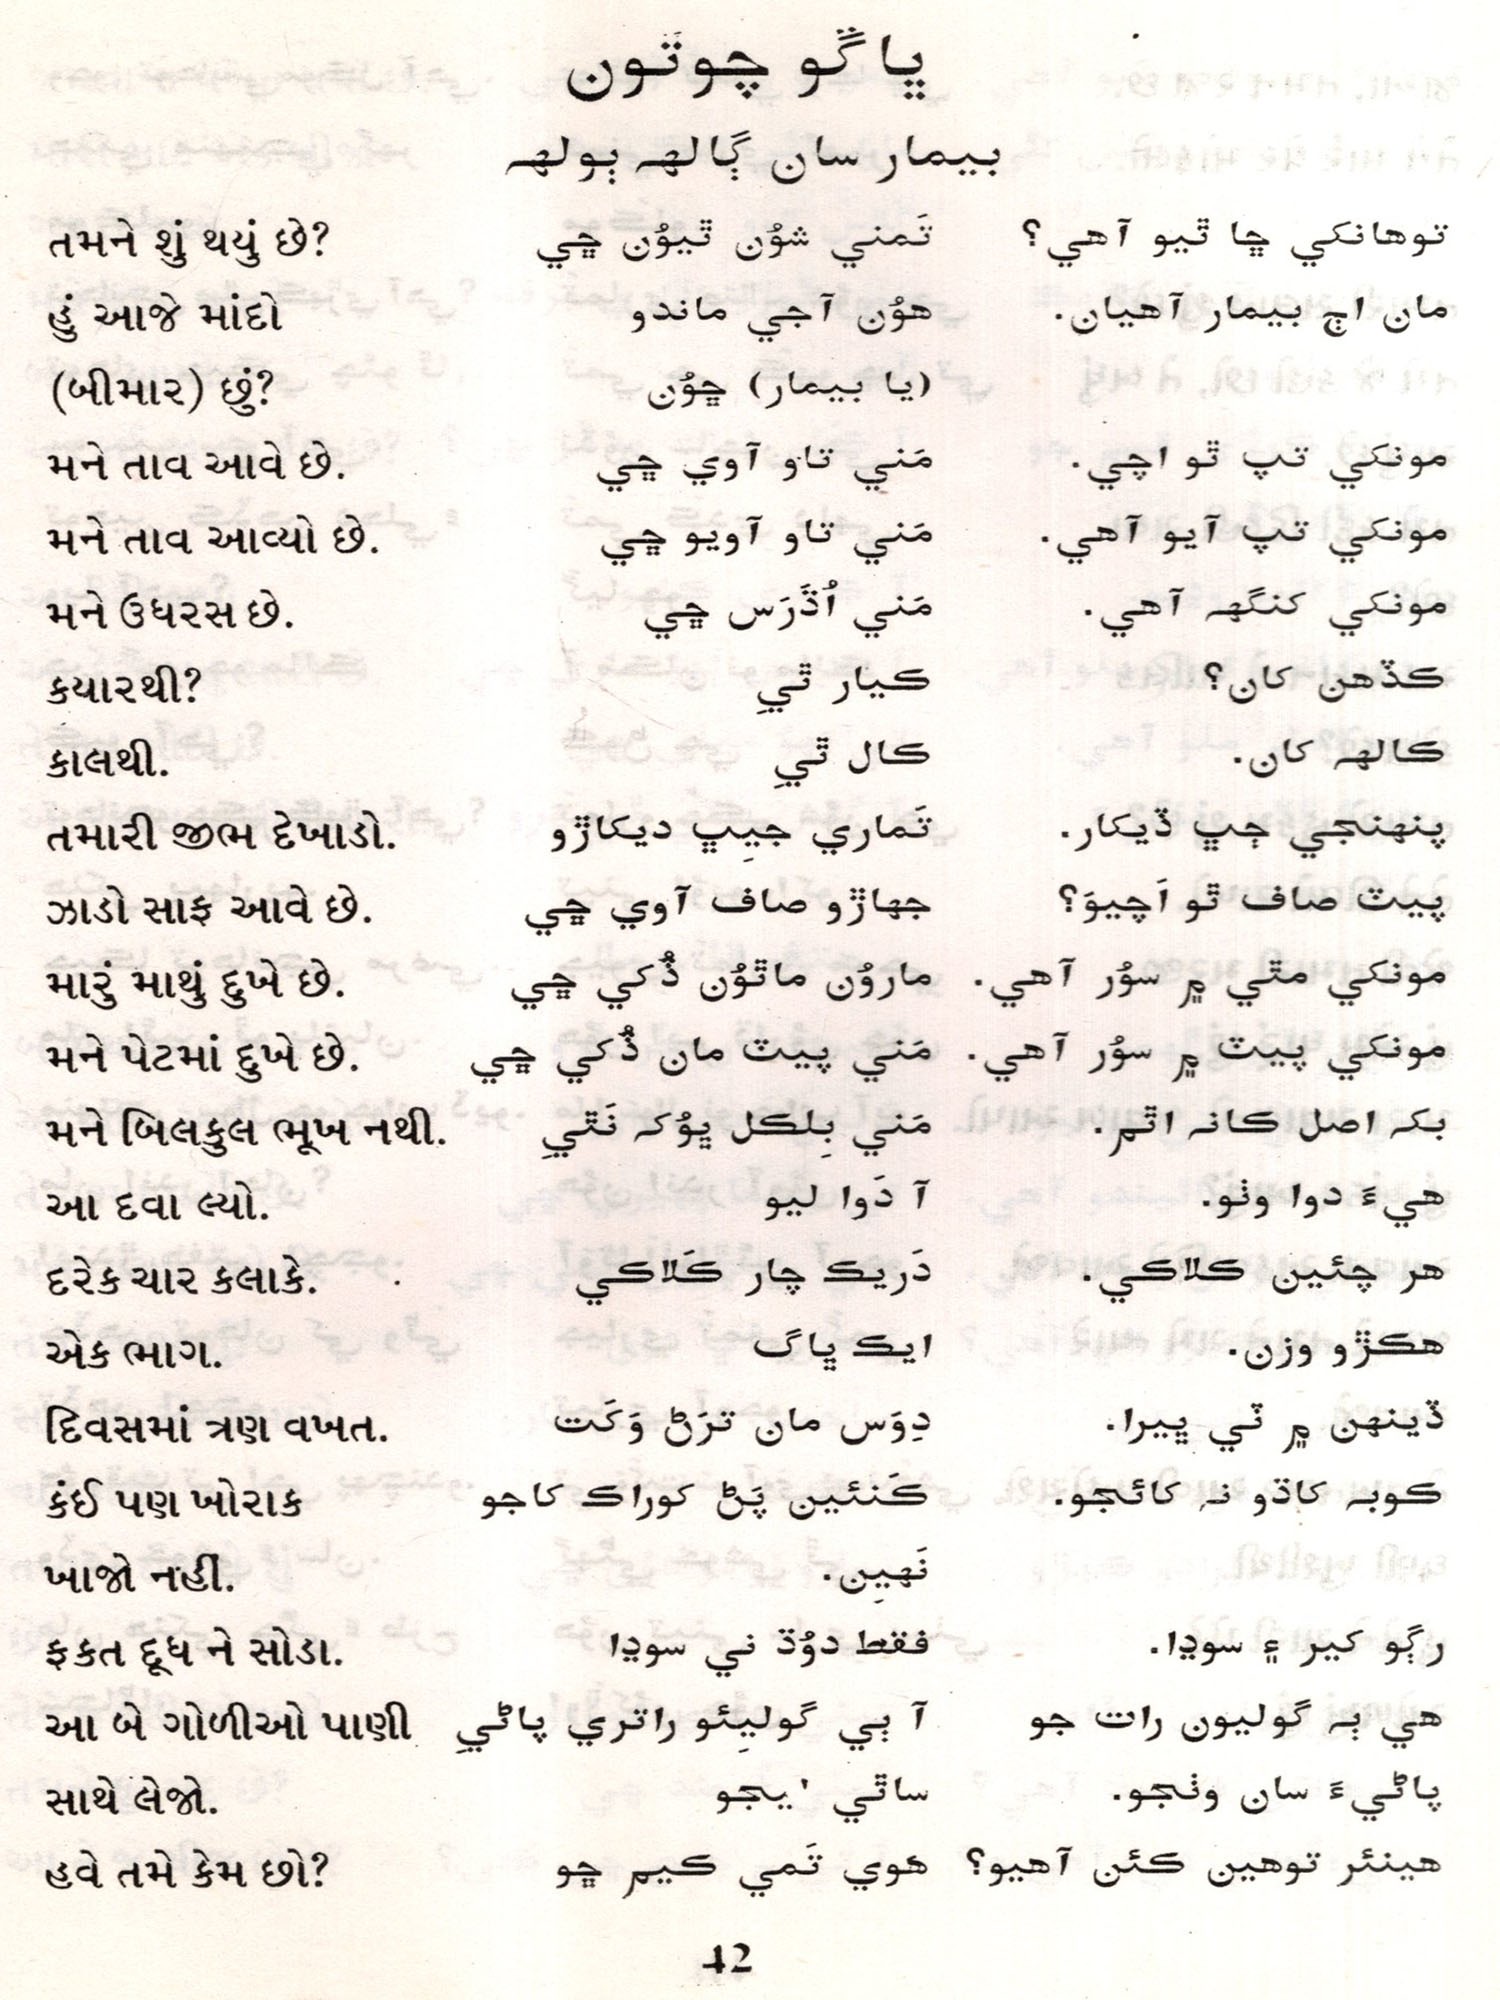 ڀاڱو چوٿون
بيمار سان ڳالهہ ٻولهہ
તમને શું થયું છે? تَمني شوُن ٿيوُن ڇي توهانکي ڇا ٿيو آهي؟
હું આજે માંદો هوُن آجي ماندو مان اڄ بيمار آهيان.
(બીમાર) છું? (يا بيمار) ڇوُن
મને તાવ આવે છે. مَني تاو آوي ڇي مونکي تپ ٿو اچي.
મને તાવ આવ્યો છે. مَني تاو آويو ڇي مونکي تپ آيو آهي.
મને ઉધરસ છે. مَني اُڌَرَس ڇي مونکي کنگهہ آهي.
કયારથી? ڪيار ٿيِ ڪڏهن کان؟
કાલથી. ڪال ٿيِ ڪالهہ کان.
તમારી જીભ દેખાડો. تَماري جيِڀ ديکاڙو پنهنجي ڄڀ ڏيکار.
ઝાડો સાફ આવે છે. جهاڙو صاف آوي ڇي پيٽ صاف ٿو اَچيوَ؟
મારું માથું દુખે છે. ماروُن ماٿوُن دُکي ڇي مونکي مٿي ۾ سوُر آهي.
મને પેટમાં દુખે છે. مَني پيٽ مان دُکي ڇي مونکي پيٽ ۾ سوُر آهي.
મને બિલકુલ ભૂખ નથી. مَني بِلڪل ڀوُکہ نَٿيِ بکہ اصل ڪانہ اٿم.
આ દવા લ્યો. آ دَوا ليو هيءَ دوا وٺو.
દરેક ચાર કલાકે. دَريڪ چار ڪَلاڪي هر چئين ڪلاڪي.
એક ભાગ. ايڪ ڀاگ هڪڙو وزن.
દિવસમાં ત્રણ વખત. دِوَس مان ترَڻ وَکَت ڏينهن ۾ ٽي ڀيرا.
કંઈ પણ ખોરાક ڪَنئين پَڻ کوراڪ کاجو ڪوبہ کاڌو نہ کائجو.
ખાજો નહીં. نَهيِن.
ફકત દૂધ ને સોડા. فقط دوُڌ ني سوڊا رڳو کير ۽ سوڊا.
આ બે ગોળીઓ પાણી آ ٻي گوليِئو راتري پاڻيِ هي ٻہ گوليون رات جو
સાથે લેજો. ساٿي 'يجو پاڻيءَ سان وٺجو.
હવે તમે કેમ છો? هوي تَمي ڪيم ڇو هينئر توهين ڪئن آهيو؟
42